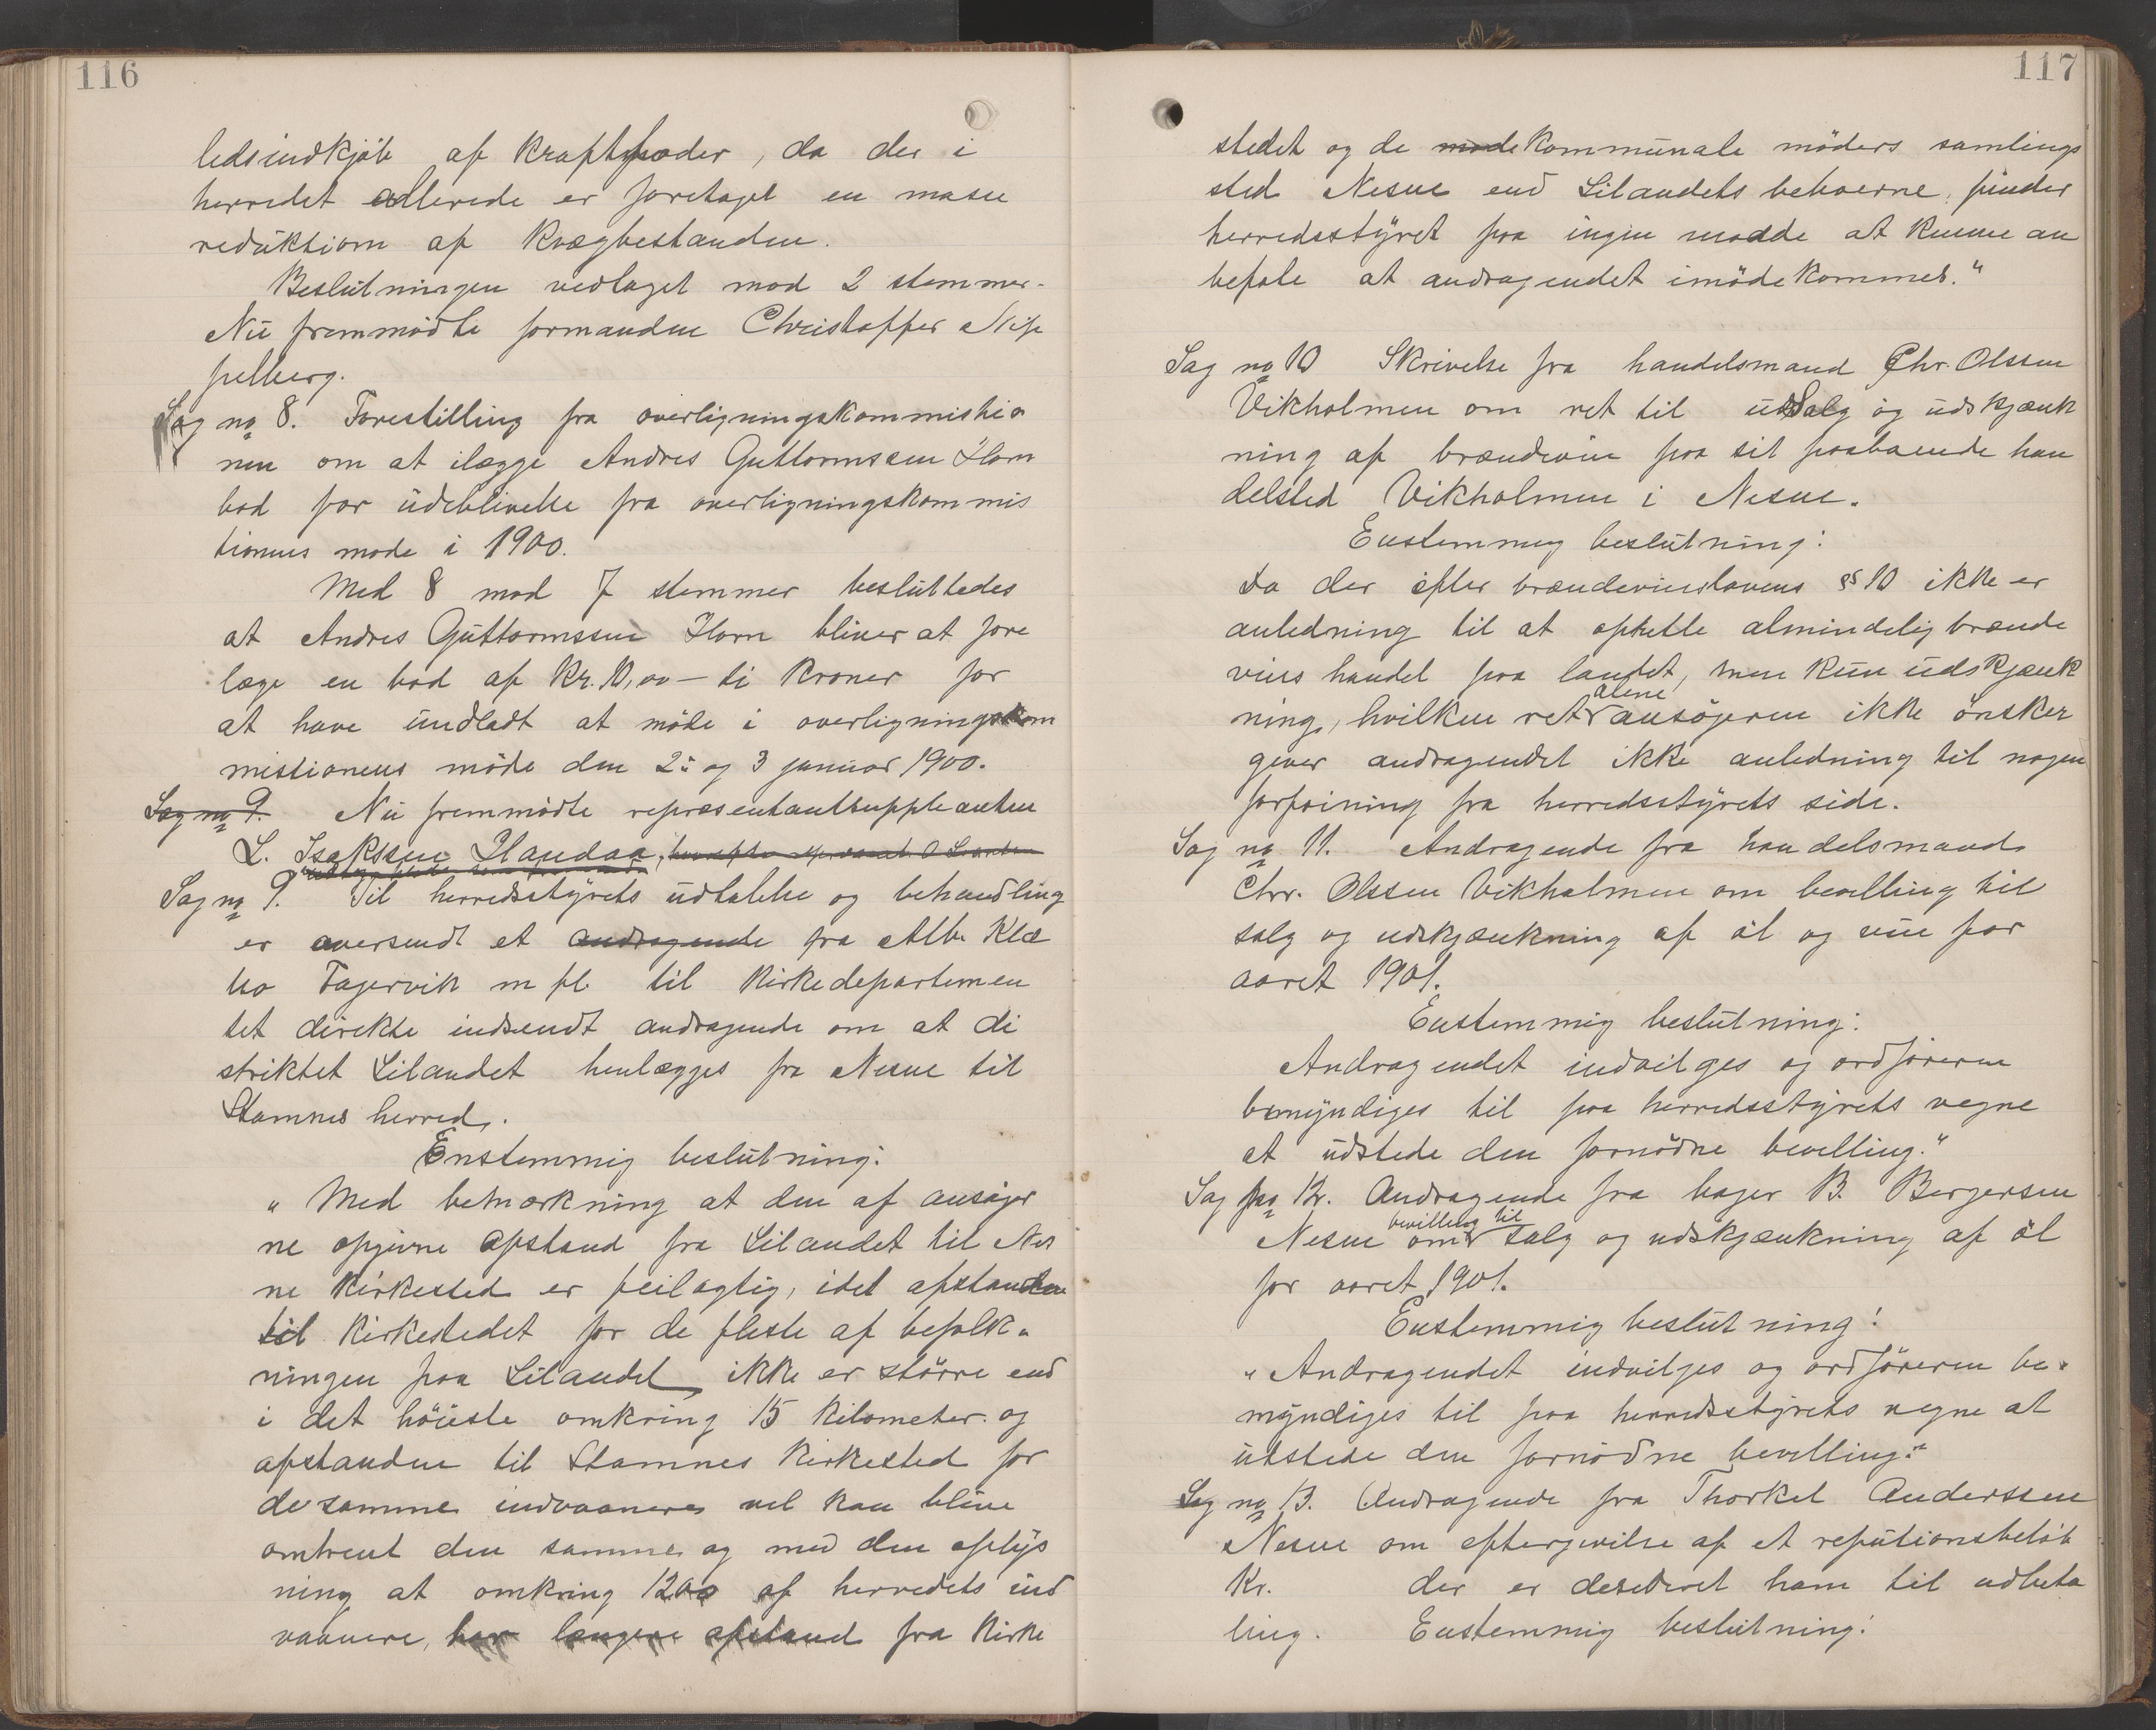 116
ledsindkjøb af kraftfoder, da der i
herredet allerede er foretaget en masse
reduktion af kvægbestanden.
Beslutningen vedtaget mod 2 stemmer.
Nu fremmødte formanden Christoffer Nip
pelberg.
Sag no 8. Forestilling fra overligningskommissio
nen om at ilægge Andres Guttormssen Horn
bod for udeblivelse fra overligningskommis
tionens møde i 1900.
Med 8 mod 7 stemmer besluttedes
at Andres Guttormssen Horn bliver at fore
læge en bod af Kr. 10,00 – ti kroner for
at have undladt at møde i overligningskom
missionens møde den 2: og 3 januar 1900.
Sag no 9. Nu fremmødte repræsentantsuppleanten
L. Isakssen Handaa,
Sag no 9. Til herredsstyrets udtalelse og behandling
er oversendt et andragende fra Alb. Klæ
bo Fagervik m fl. til Kirkedepartemen
tet direkte indsendt andragende om at di
striktet Lilandet henlægges fra Nesne til
Stamnes herred.
Enstemmig beslutning:
„Med bemærkning at den af ansøger
ne opgivne afstand fra Lilandet til Nes
ne kirkested er feilagtig, idet afstanden
til kirkestedet for de fleste af befolk-
ningen paa Lilandet ikke er större end
i det höieste omkring 15 kilometer og
afstanden til Stamnes kirkested for
de samme indvaanere vel kan blive
omtrent den samme og med den oplys
ning at omkring 1200 af herredets ind
vaanere, har længere afstand fra kirke
117
stedet og de mode kommunale möders samlings
sted Nesne end Lilandets beboerne, finder
herredsstyret paa ingen maade at kunne an
befale at andragendet imödekommes."
Sag no 10 Skrivelse fra handelsmand Chr. Olssen
Vikholmen om ret til udsalg og udskjænk
ning af brændevin paa sit paaboende han
delsted Vikholmen i Nesne.
Enstemmig beslutning:
Da der efter brændevinslovens §§ 10 ikke er
anledning til at oprette almindelig brænde
vins handel paa landet, men kun udskjænk
alene
ning, hvilken ret ansögeren ikke önsker
giver andragendet ikke anledning til nogen
forföining fra herredsstyrets side.
Sag no 11. Andragende fra handelsmand
Chr. Olssen Vikholmen om bevilling til
salg og udskjænkning af öl og vin for
aaret 1901.
Enstemmig beslutning:
Andragendet indvilges og ordföreren
bemyndiges til paa herredsstyrets vegne
at udstede den fornödne bevilling."
Sag no 12. Andragende fra bager B. Bergersen
bevilling til
Nesne om salg og udskjænkning af öl
for aaret 1901.
Enstemmig beslutning:
„Andragendet indvilges og ordföreren be-
myndiges til paa herredsstyrets vegne at
utstede den fornödne bevilling."
Sag no 13. Andragende fra Thorkel Anderssen
Nesne om eftergivelse af et reputionsbelöb
Kr. der er desederet ham til udbeta
ling. Enstemmig beslutning: